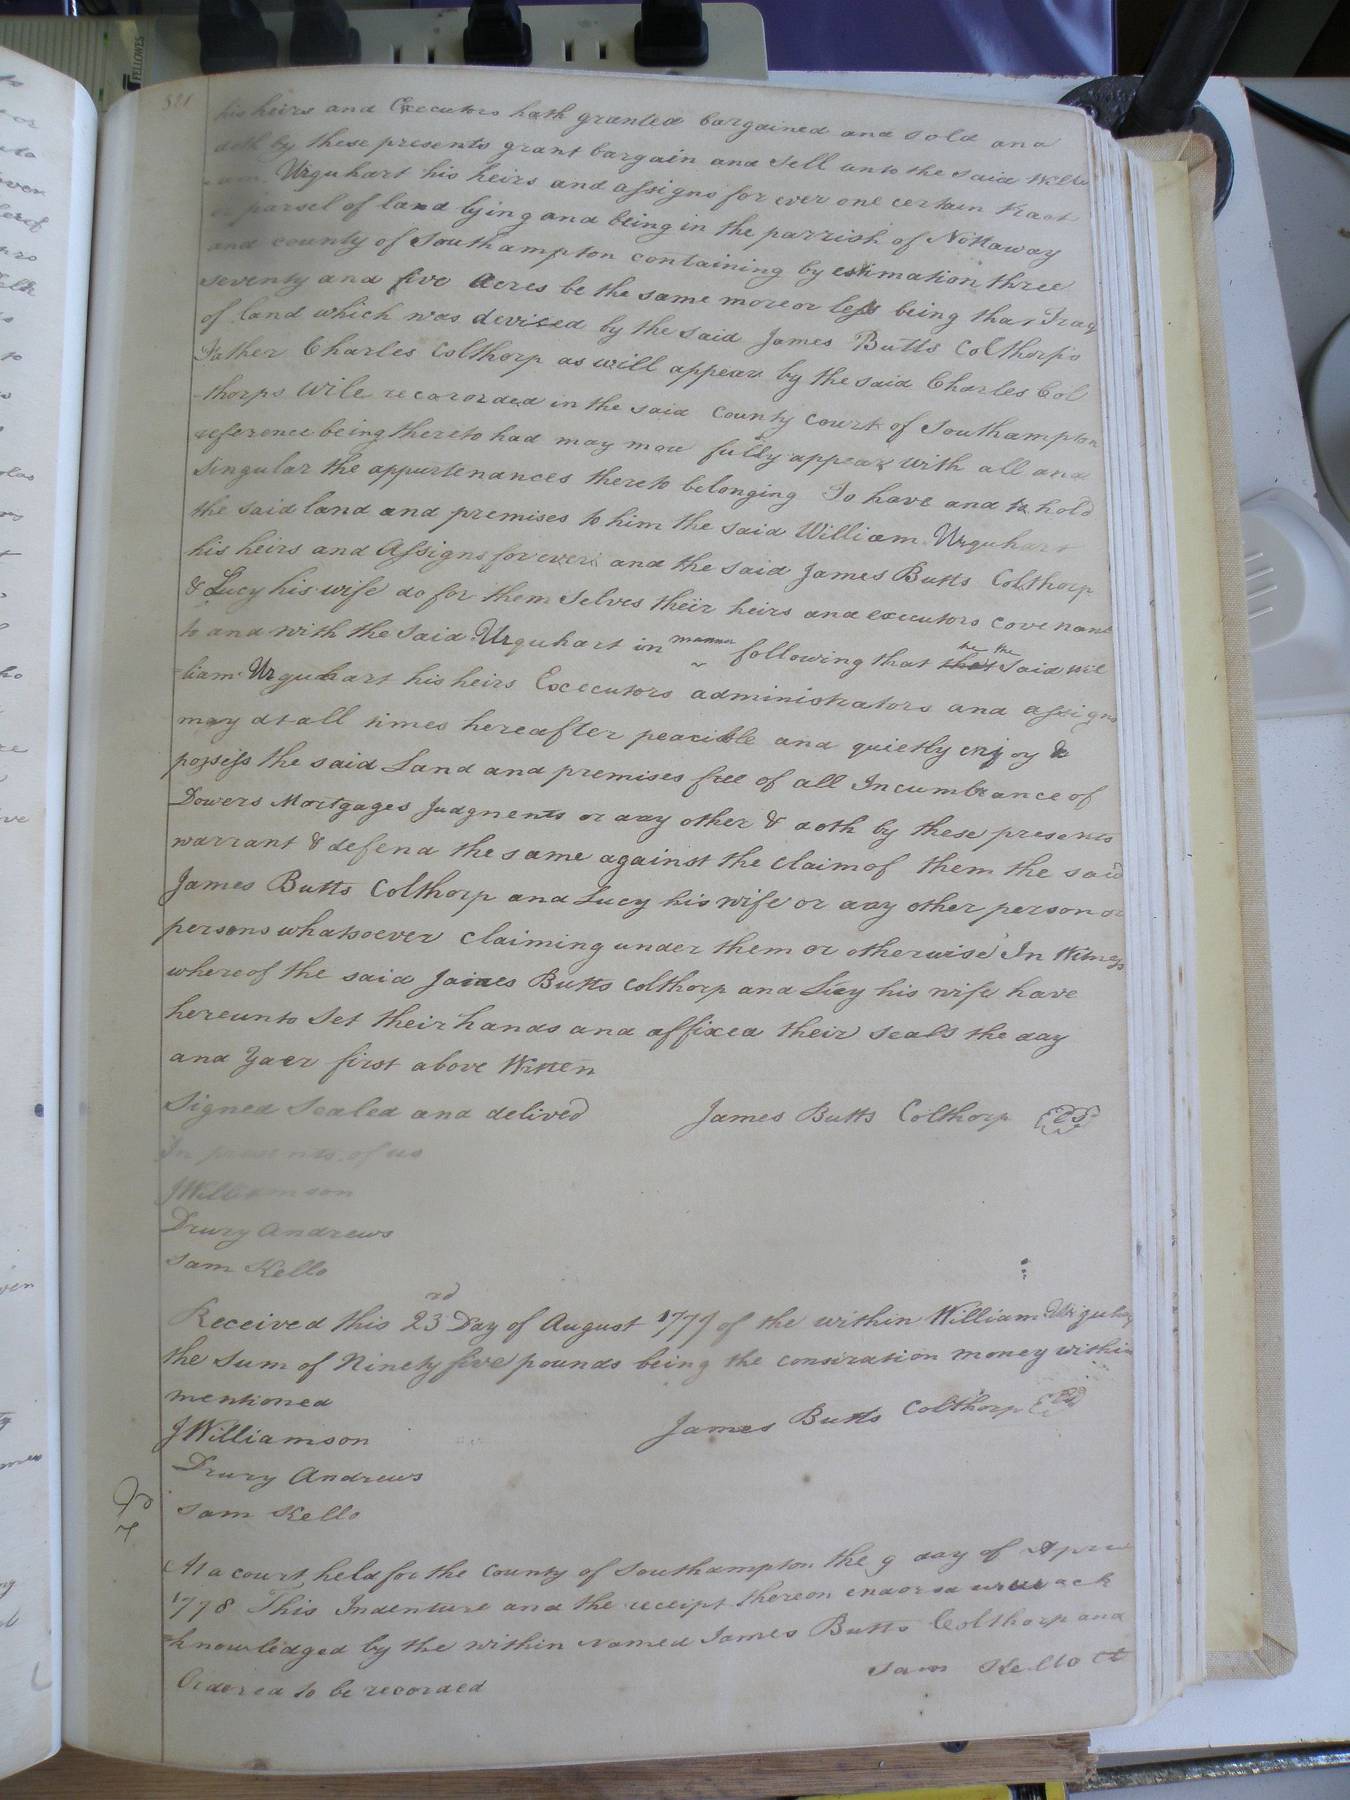 FELLOWES
521
his heirs and Executors hath granted bargained and sold and
doth by these presents grant bargain and Sell unto the said Willi
-am Urquhart his heirs and assigns for ever one certain tract
or parsel of land lying and being in the parrish of Nottaway
and county of Southampton containing by estimation three
seventy and five Acres be the same more or less being that Tract
of land which was devised by the said James Butts Colthorp's
Father Charles Colthorp as will appear by the said Charles Col
-thorps Wile recororded in the said County Court of Southampton
reference being thereto had may more fully appear with all and
Singular the appurtenances thereto belonging To have and to hold
the said land and premises to him the said William Urquhart
his heirs and Assigns for ever and the said James Butts Colthorp
& Lucy his wife do for them Selves their heirs and executors covenant
to and with the Said Urquhart in manner following that the the Said Wil
-liam Urquhart his heirs Executors administrators and assigns
may at all times hereafter peacible and quietly enjoy &
possess the said Land and premises free of all Incumbrance of
Dowers Mortgages Judgments or any other & doth by these presents
warrant & defend the same against the claim of them the said
James Butts Colthorp and Lucy his wife or any other person or
persons whatsoever claiming under them or otherwise In Witness
whereof the said James Butts Colthorp and Lucy his wife have
hereunto Set their hands and affixed their seals the day
and Yaer first above Witten
Signed Sealed and delived James Butts Colthorp LS
In presents of us
JWilliamson
Drury Andrews
Sam Kello
Received this 23rd Day of August 1777 of the within William Urquhart
the Sum of Ninety five pounds being the consiration money within
mentioned
James Butts Colthorp
JWilliamson
Drury Andrews
Sam Kello
At a court held for the County of Southampton the 9 day of April
1778 This Indenture and the receipt thereon endorsd were ack
=knowledged by the within Named James Butts Colthorp and
Ordered to be recorded Sam Kello Ct